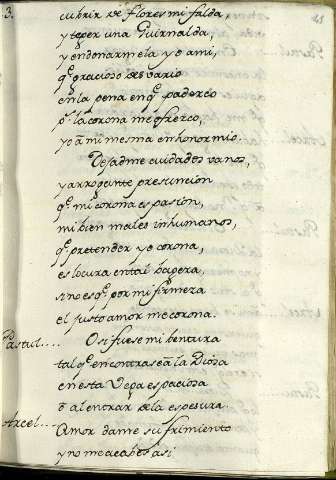 3.
cubrir de flores mi falda,
y teger una Guirnalda,
y endonarmela yo ami,
q.e gracioso desvario
en la pena en q.e padezco
p.r la corona me ofrezco,
yo a mi mesma en honor mio.
Dejadme cuidados vanos,
y arrogante presuncion
q.e mi corona es pasion,
mi bien males inhumanos,
q.e pretender yo corona,
es locura en tal bagera,
sino es q.e por mi firmeza
el justo amor me corona.
Pastul.... O si fuese mi bentura
tal q.e encontrase a la Diosa
en esta Vega espaciosa
o al entrar de la espesura.
Arcel.... Amor dame sufrimiento
y no me acabes asi